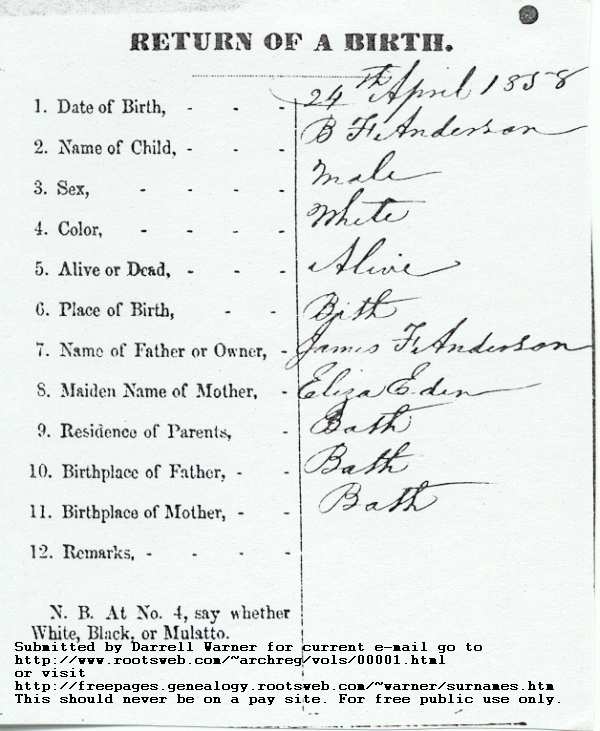 RETURN OF A BIRTH.
1. Date of Birth, - - - 24th April 1858
2. Name of Child, - - - B F. Anderson
3. Sex, - - - - Male
4. Color, - - - - White
5. Alive or Dead, - - - Alive
6. Place of Birth, - - Bath
7. Name of Father or Owner, - James F. Anderson
8. Maiden Name of Mother, - Eliza Eden
9. Residence of Parents, - Bath
10. Birthplace of Father, - - Bath
11. Birthplace of Mother, - - Bath
12. Remarks, - - - -
N. B. At No. 4, say whether
White, Black, or Mulatto.
Submitted by Darrell Warner for current e-mail go to
http://www.rootsweb.com/~archreg/vols/00001.html
or visit
http://freepages.genealogy.rootsweb.com/~warner/surnames.htm
This should never be on a pay site. For free public use only.